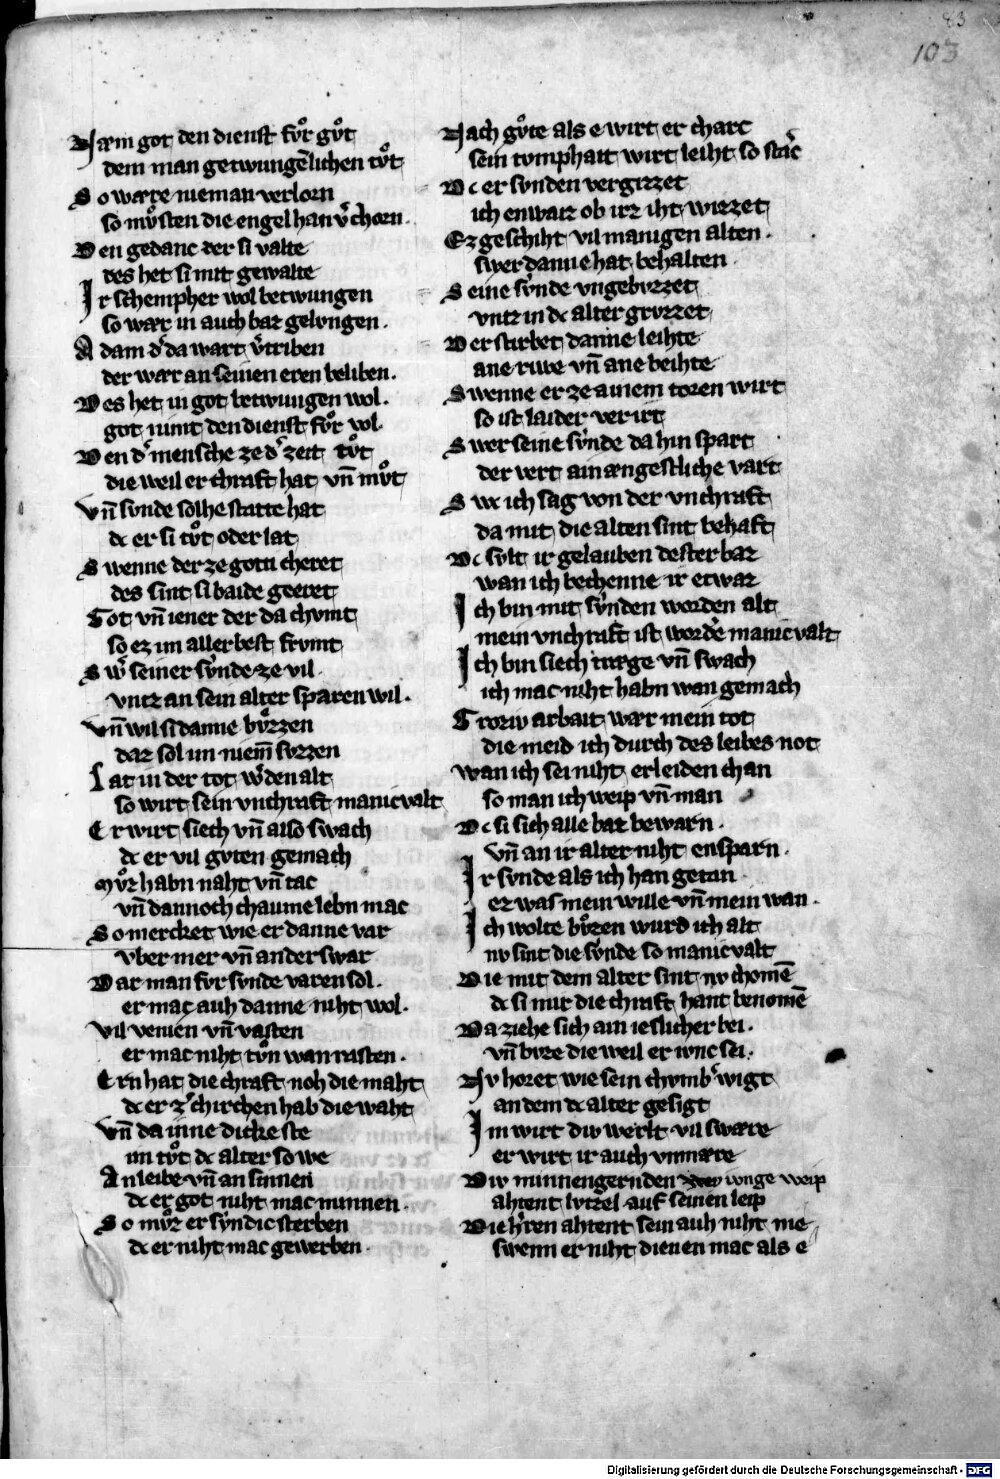 83
103
Næm got den dienst fvͦr gvͦt
dem man getwungēlichen tvͦt
So wære nieman verlorn
so mvͦsten die engel han v̓chorn.
Den gedanc der si valte
des het si mit gewalte
Ir schempher wol betwungen
so wær in auch baz gelvngen.
Adam d̓ da wart v̓triben
der wær an seinen eren beliben.
Des het in got betwungen wol.
got nimt den dienst fvͦr vol.
Den d̓ mensche ze d̓ zeit tvͦt
die weil er chraft hat vn̄ mvͦt
Vn̄ svnde solhe statte hat
dc er si tvͦt oder lat
Swenne der ze gotti cheret
des sint si baide geeret
Got vn̄ iener der da chvmt
so ez im aller best frvmt
Sw̓ seiner svnde ze vil
vntz an sein alter sparen wil.
Vn̄ wil si danne bvͦzzen
daz sol im niem̄ svzzen
Lat in der tot w̓den alt
so wirt sein vnchraft manicvalt
Er wirt siech vn̄ also swach
dc er vil gvten gemach
Mvͦz habn naht vn̄ tac
vn̄ dannoch chaume lebn mac
So mercket wie er danne var
vber mer vn̄ anderswar
Dar man fvr svnde varen sol.
er mac auh danne niht wol.
Vil venien vn̄ vasten
er mac niht tvͦn wan rasten.
Ern hat die chraft noh die maht
dc er z̓ chirchen hab die waht
Vn̄ da inne dicke ste
im tvͦt dc alter so we
An leibe vn̄ an sinnen
dc er got niht mac minnen.
So mvͦz er svndic sterben
dc er niht mac gewerben.
Nach gvͦte als e wirt er charc
sein tvmphait wirt leiht so starc
Dc er svnden vergizzet
ich enwaiz ob irz iht wizzet
Ez geschiht vil manigen alten.
swer danne hat behalten.
Seine svnde vngebvzzet
vntz in dc alter grvzzet
Der stirbet danne leihte
ane riwe vn̄ ane beihte
Swenne er ze ainem toren wirt
so ist laider verirt
Swer seine svnde da hin spart
der vert ain ængestliche vart
Swc ich sag von der vnchraft
da mit die alten sint behaft
Dc svlt ir gelauben dester baz
wan ich bechenne ir etwaz
Ich bin mit svnden worden alt
mein vnchraft ist word̓ manicvalt
Ich bin siech træge vn̄ swach
ich mac niht habn wan gemach
Groziv arbait wær mein tot
die meid ich durch des leibes not
Wan ich sei niht erleiden chan
so man ich weip vn̄ man
Dc si sich alle baz bewarn.
Vn̄ an ir alter niht ensparn.
Ir svnde als ich han getan
ez was mein wille vn̄ mein wan.
Ich wolte bvͦzen wurd ich alt
nv sint die svnde so manicvalt
Die mit dem alter sint nv chomē
dc si mir die chraft hant benomē
Da ziehe sich ain ieslicher bei.
vn̄ bvze die weil er ivnc sei.
Nv horet wie sein chvmb̓ wigt
an dem dc alter gesigt
Im wirt div werlt vil swære
er wirt ir auch vnmære
Div minnengernden ivnge weip
ahtent lvtzel auf seinen leip
Die h̓ren ahtent sein auh niht me
swenn er niht dienen mac als e
Digitalisierung gefördert durch die Deutsche Forschungsgemeinschaft - DFG